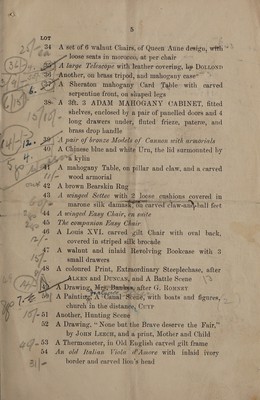 5
LOT
34 A set of 6 walnut Chairs, of Queen Anne design, with
loose seats in morocco, at per chair
35 A large Telescope with leather covering, by DOLLOND
36 Another, on brass tripod, and mahogany case
37 A Sheraton mahogany Card Table with carved
serpentine front, on shaped legs
38 A 3ft. 3 ADAM MAHOGANY CABINET, fitted
shelves, enclosed by a pair of panelled doors and 4
long drawers under, fluted frieze, pateræ, and
brass drop handle
39 A pair of bronze Models of Cannon with armorials
40 A Chinese blue and white Urn, the lid surmounted by
a kylin
41 A mahogany Table, on pillar and claw, and a carved
wood armorial
42 A brown Bearskin Rug
43 A winged Settee with 2 loose cushions covered in
marone silk damask, on carved claw-and-ball feet
44 A winged Easy Chair, en suite
45 The companion Easy Chair
46 A Louis XVI. carved gilt Chair with oval back,
covered in striped silk brocade
47 A walnut and inlaid Revolving Bookcase with 3
small drawers
48 A coloured Print, Extraordinary Steeplechase, after
ALKEN and DUNCAN, and A Battle Scene
49 A Drawing, Mrs. Bankes, after G. ROMNEY
50 A Painting, A Canal Scene, with boats and figures,
church in the distance, CUYP
51 Another, Hunting Scene
52 A Drawing, "None but the Brave deserve the Fair,"
by JOHN LEECH, and a print, Mother and Child
53 A Thermometer, in Old English carved gilt frame
54 An old Italian Viola d'Amore with inlaid ivory
border and carved lion's head